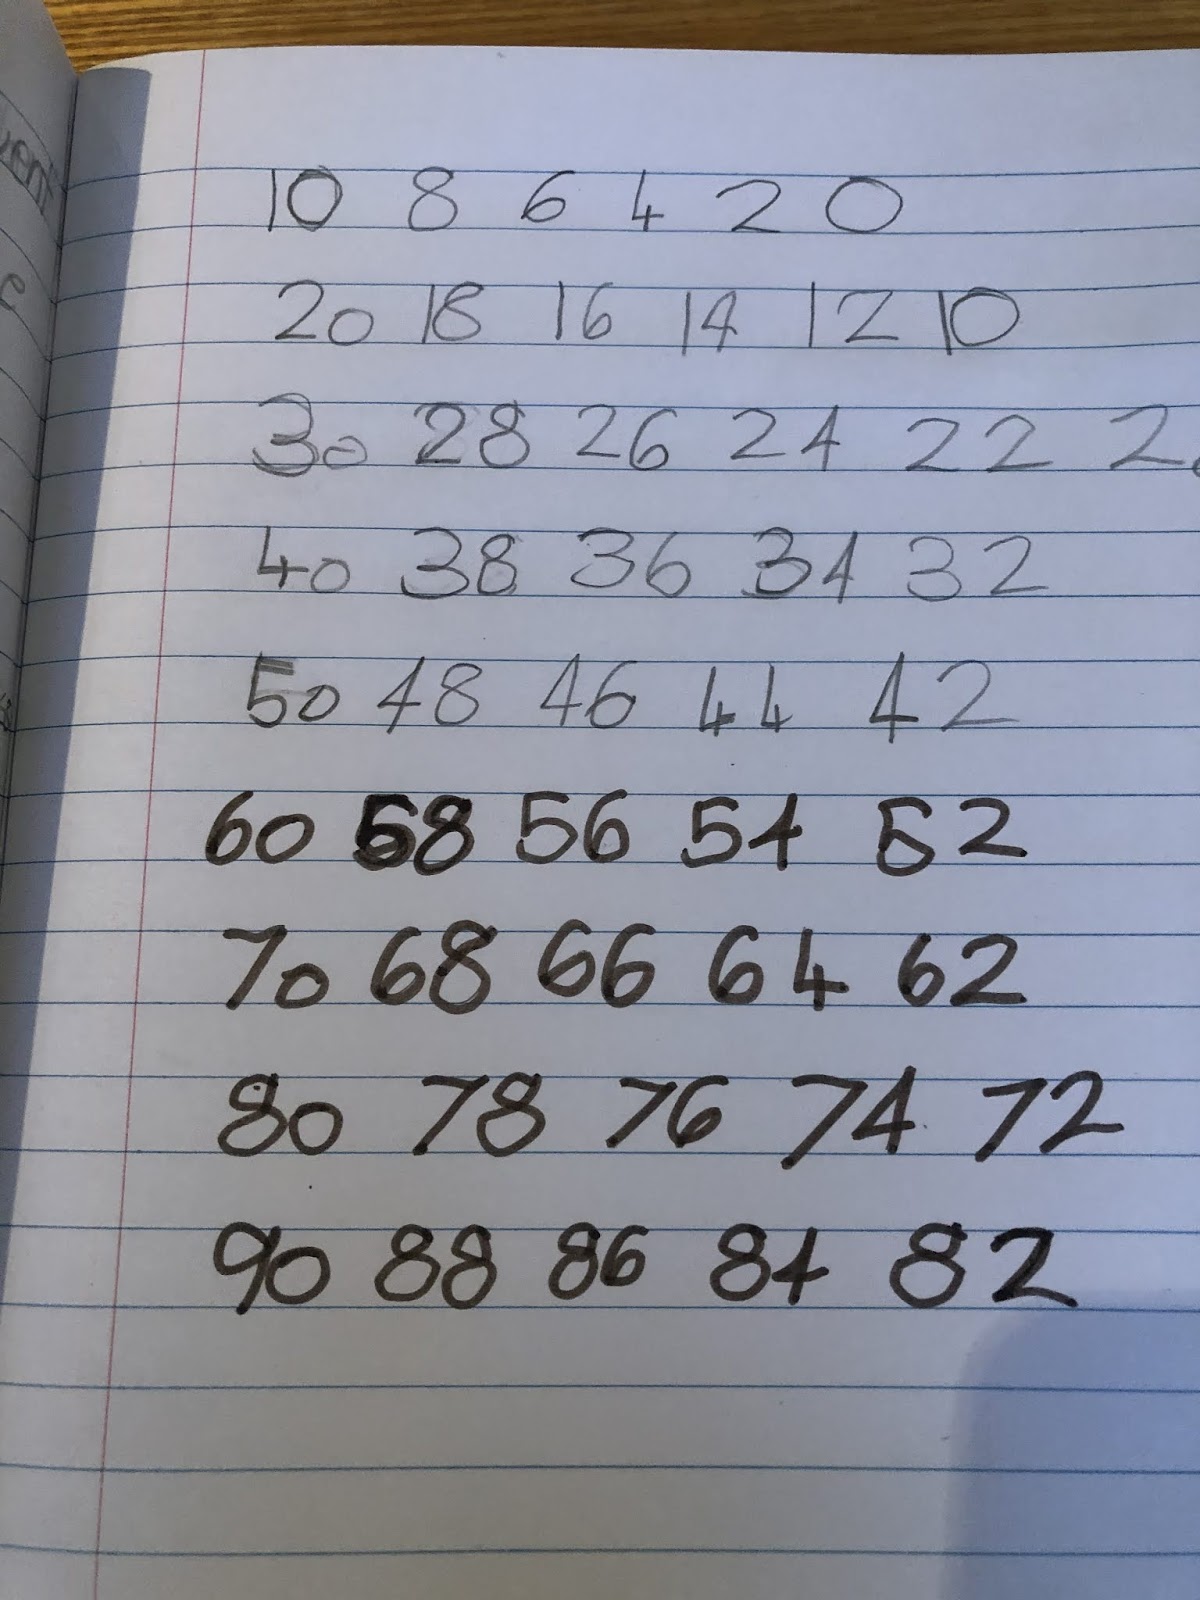 10 8 6 4 2 0
20 18 16 14 12 10
30 28 26 24 22
40 38 36 34 32
50 48 46 44 42
60 58 56 54 52
70 68 66 64 62
80 78 76 74 72
90 88 86 84 82